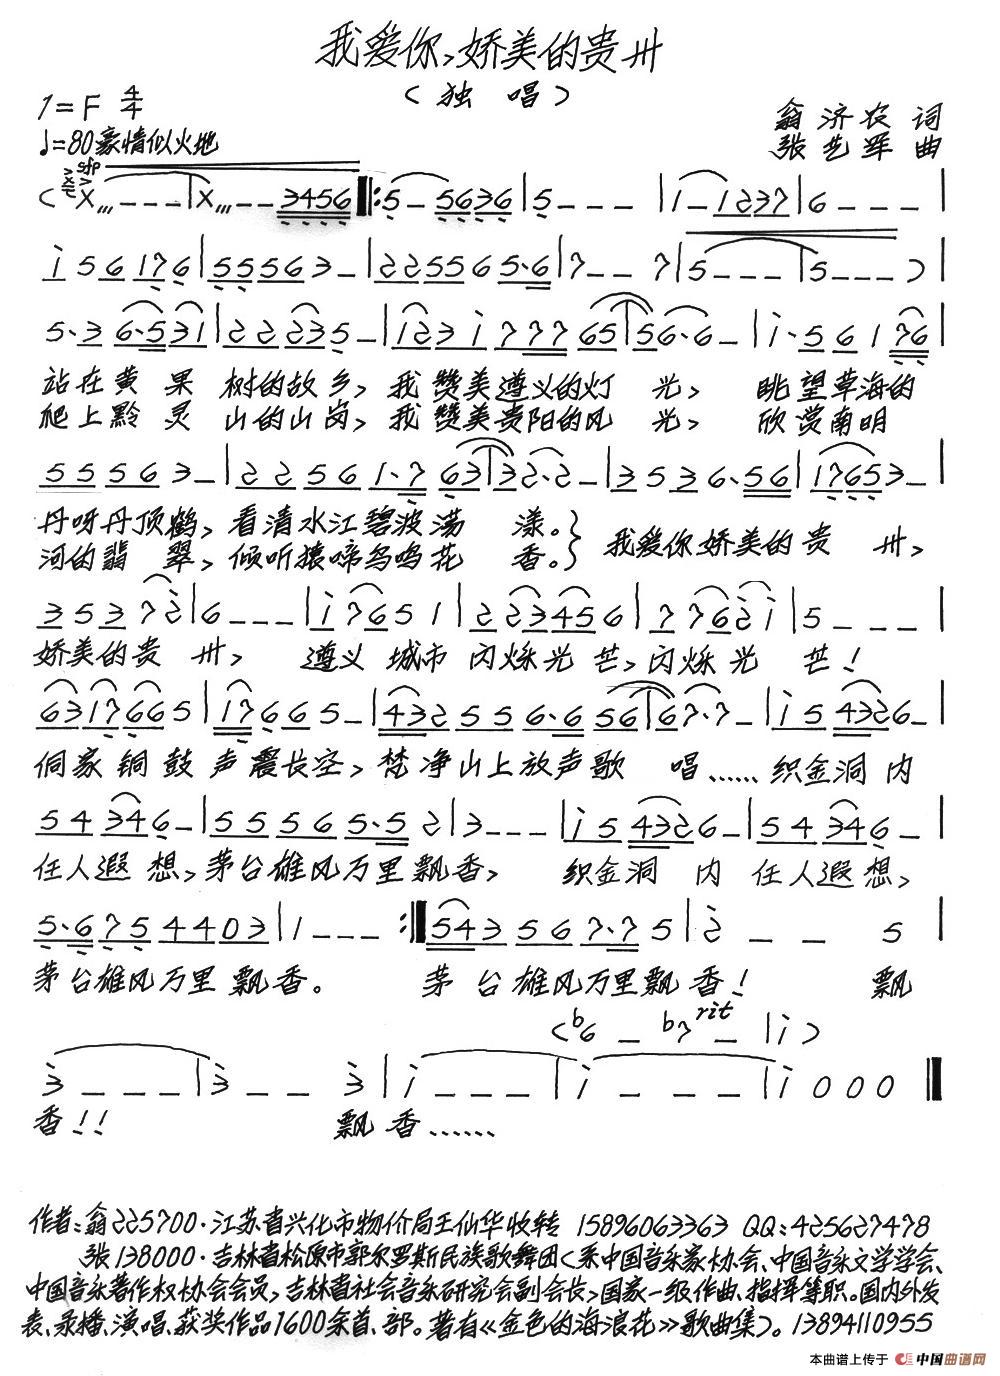 我爱你,娇美的贵州
(独 唱)
1=F 4/4
♩=80豪情似火地
翁济农 词
张艺军 曲
站在黄 果 树的故乡, 我 赞美遵义的灯 光, 眺望草海的
爬上黔 灵 山的山岗, 我 赞美贵阳的风 光, 欣赏南明
丹呀丹顶鹤, 看清水江碧波荡 漾。}
河的翡 翠, 倾听猿啼鸟鸣花 香。} 我爱你娇美的贵 州,
娇美的贵 州, 遵义 城市 闪烁光 芒, 闪烁光 芒!
侗家铜鼓声震长空, 梵净山上放声歌 唱…… 织金洞内
任人遐想, 茅台雄风万里飘香, 织金洞 内 任人遐想,
茅台雄风万里飘香。 茅台雄风万里飘香! 飘
rit
香!! 飘香……
作者:翁225700·江苏省兴化市物价局王仙华收转 15896063363 QQ:425627478
张138000·吉林省松原市郭尔罗斯民族歌舞团(系中国音乐家协会、中国音乐文学学会、
中国音乐著作权协会会员,吉林省社会音乐研究会副会长,国家一级作曲、指挥等职。国内外发
表、录播、演唱、获奖作品1600余首、部。著有《金色的海浪花》歌曲集)。13894110955
本曲谱上传于 中国曲谱网